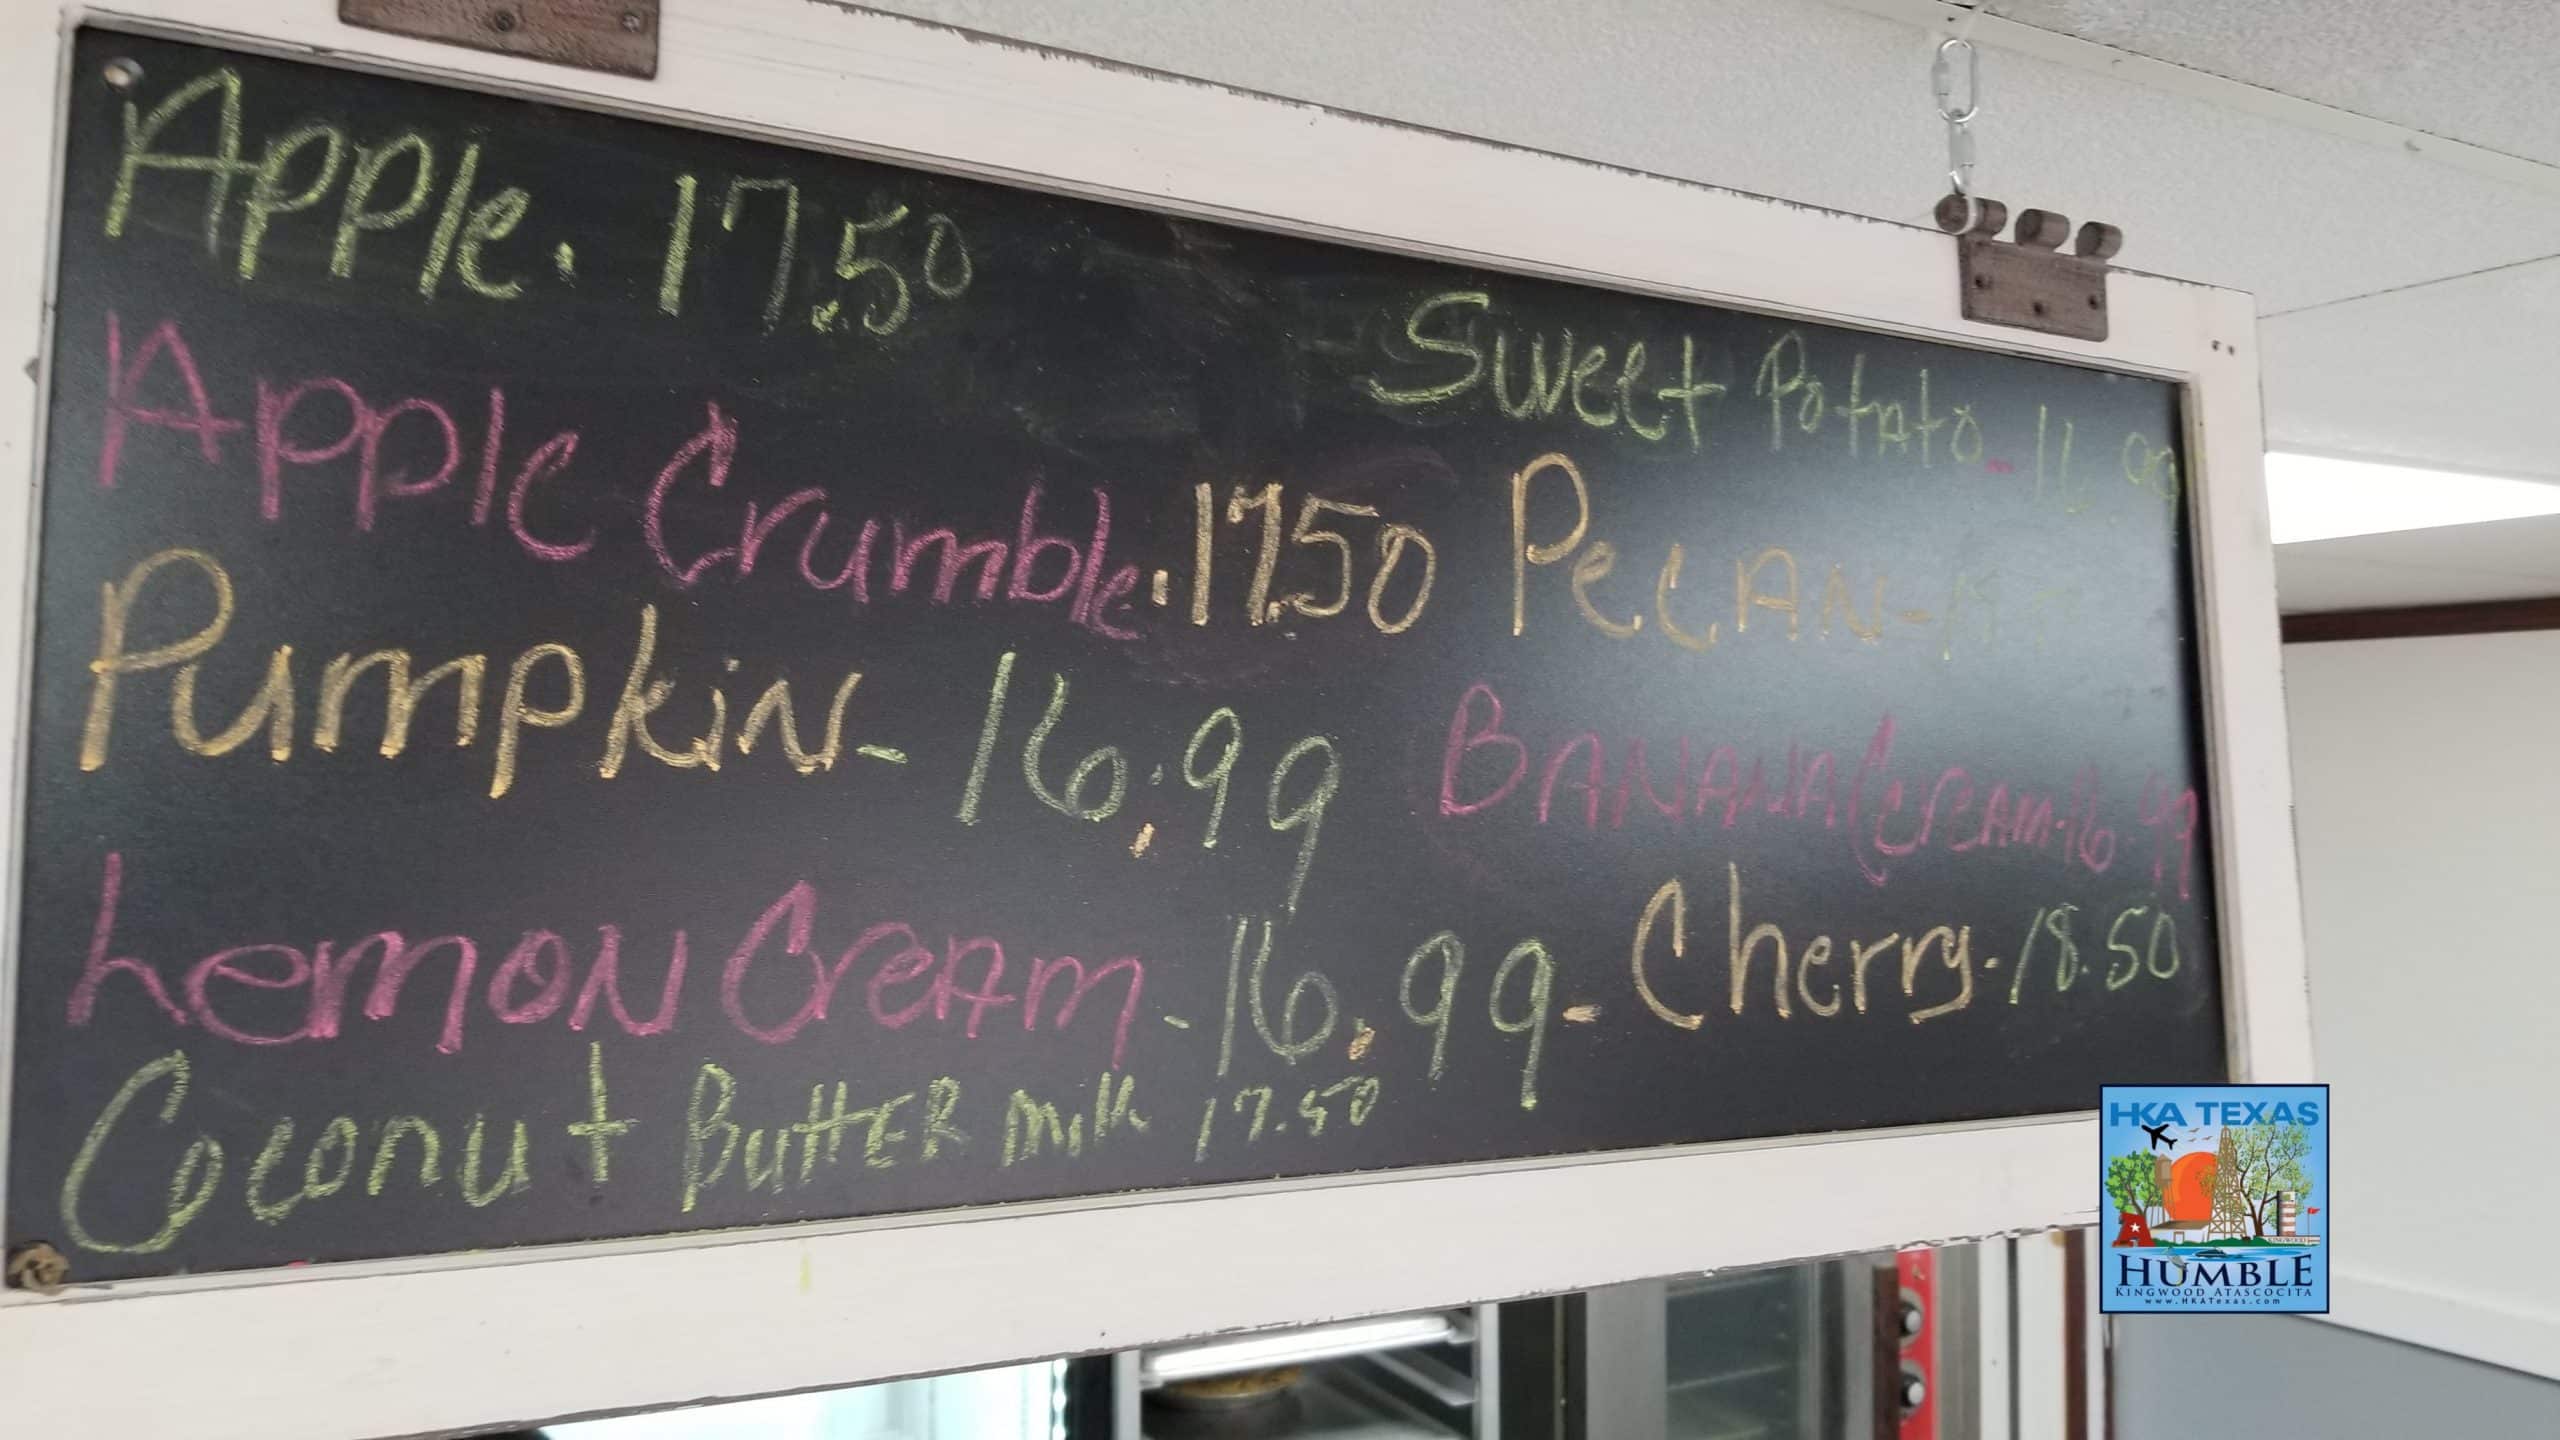 Apple. 17.50
Apple Crumble. 17.50
Pumpkin - 16.99
Lemon Cream - 16.99 -
Coconut Butter milk 17.50
Sweet Potato - 16.99
Pecan -
Banana Cream - 16.99
Cherry - 18.50
HKA TEXAS
KINGWOOD
HUMBLE
KINGWOOD ATASCOCITA
www.HKATexas.com